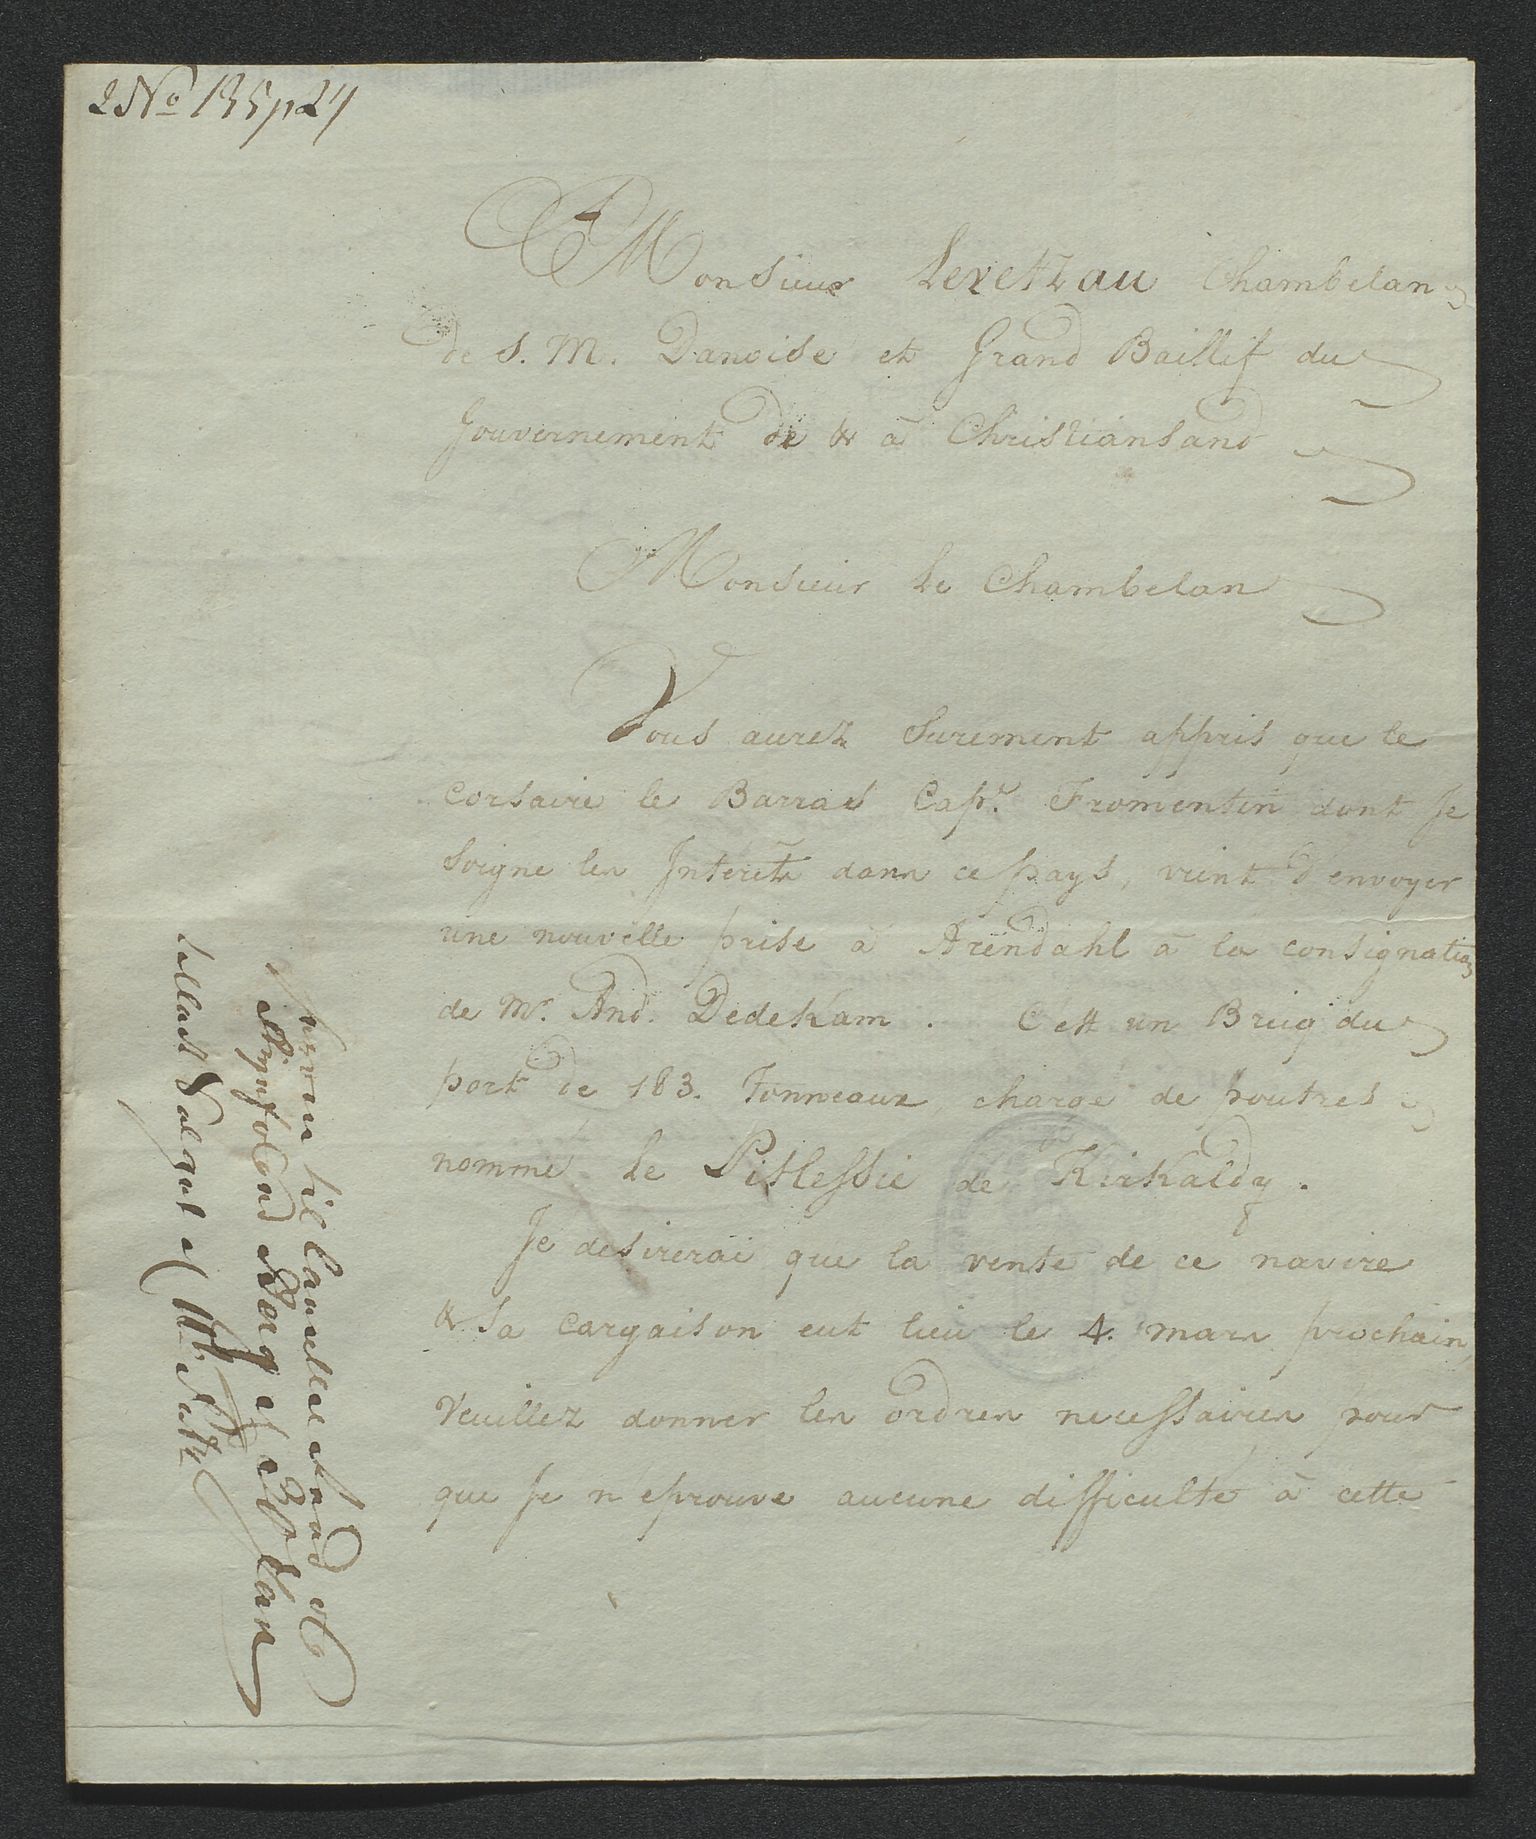 2 No 135 p 27
A Monsieur Levetzau Chambelan
de S. M. Danoise et Grand Baillif du
Gouvernement de & à Christiansand
Monsieur le Chambelan
Vous aurez surement appris que le
corsaire le Barras Cap.e Fromentin dont Je
soigne les Interêts dans ce pays, vient d'envoyer
une nouvelle prise à Arendahl à la consignation
de Mr. And. Dedekam. C'est un Brig du
port de 183. Tonneaux, chargé de poutres
nommé le Pitlessie de Kirkaldy.
Je desirerai que la vente de ce navire
& sa cargaison eut lieu le 4. mars prochain,
Veuillez donner les ordres necessaires pour
que Je n'eprouve aucune difficulté à cette